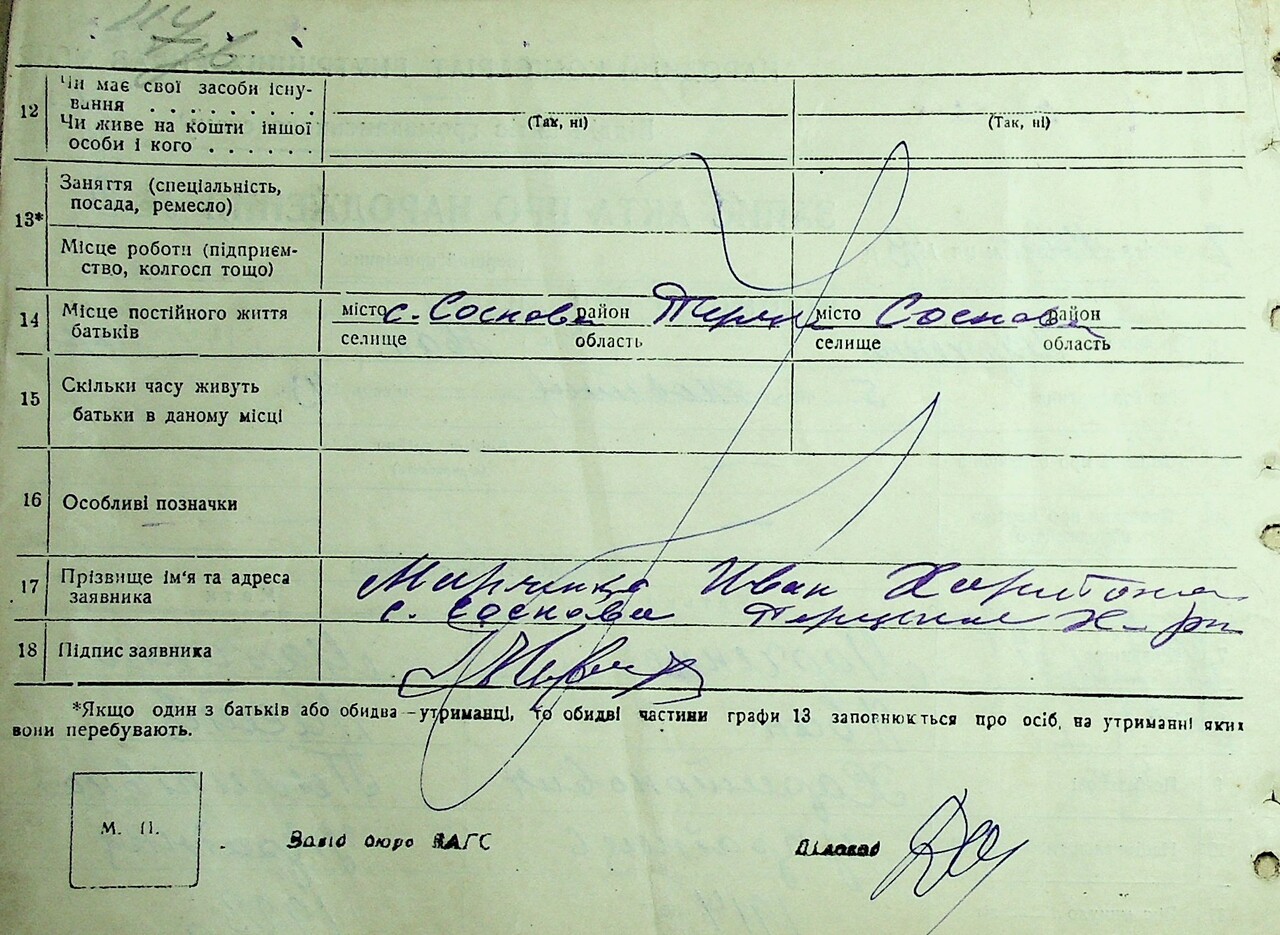 12 Чи має свої засоби існу-
вання . . . . . . . . . .
Чи живе на кошти іншої
особи і кого . . . . . .
(Так, ні) (Так, ні)
13* Заняття (спеціальність,
посада, ремесло)
Місце роботи (підприєм-
ство, колгосп тощо)
14 Місце постійного життя
батьків
місто с. Соснова район місто Соснова район
селище область селище область
15 Скільки часу живуть
батьки в даному місці
16 Особливі позначки
17 Прізвище ім'я та адреса
заявника
Марченко Иван
с. Соснова
18 Підпис заявника
*Якщо один з батьків або обидва—утриманці, то обидві частини графи 13 заповнюється про осіб, на утриманні яких
вони перебувають.
М. П.
Завід бюро ЗАГС Діловод